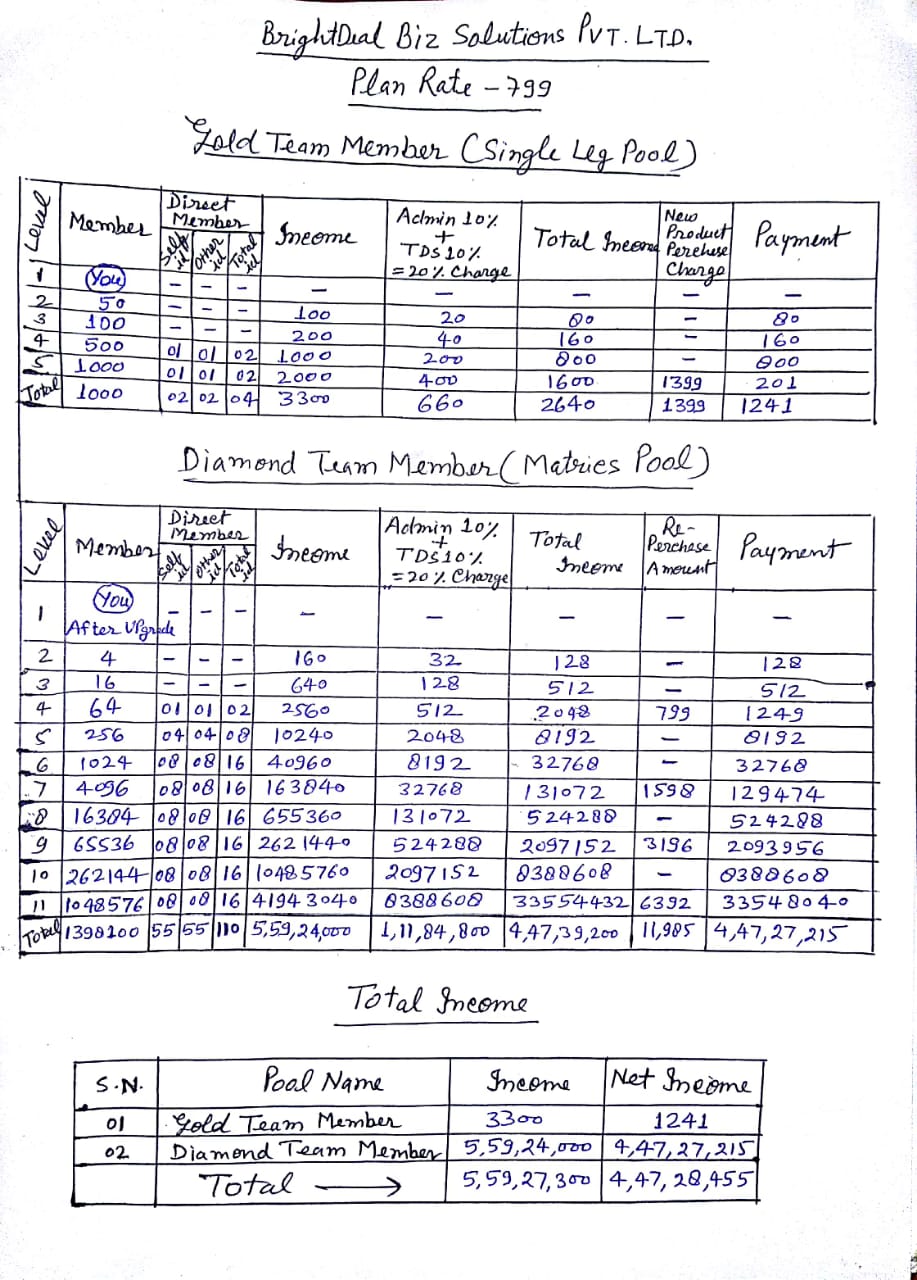 BrightDeal Biz Solutions PVT. LTD.
Plan Rate - 799
Gold Team Member (Single Leg Pool)
Level | Member | Direct Member | Self id | Other id | Total id | Income | Admin 10% + TDS 10% = 20% Charge | Total Income | New Product Perchese Charge | Payment
1 | You | - | - | - | - | - | - | - | -
2 | 50 | - | - | - | 100 | 20 | 80 | - | 80
3 | 100 | - | - | - | 200 | 40 | 160 | - | 160
4 | 500 | 01 | 01 | 02 | 1000 | 200 | 800 | - | 800
5 | 1000 | 01 | 01 | 02 | 2000 | 400 | 1600 | 1399 | 201
Total | 1000 | 02 | 02 | 04 | 3300 | 660 | 2640 | 1399 | 1241
Diamond Team Member (Matries Pool)
Level | Member | Direct Member | Self id | Other id | Total id | Income | Admin 10% + TDS 10% = 20% Charge | Total Income | Re-Perchase Amount | Payment
1 | You After Upgrade | - | - | - | - | - | - | - | -
2 | 4 | - | - | - | 160 | 32 | 128 | - | 128
3 | 16 | - | - | - | 640 | 128 | 512 | - | 512
4 | 64 | 01 | 01 | 02 | 2560 | 512 | 2048 | 799 | 1249
5 | 256 | 04 | 04 | 08 | 10240 | 2048 | 8192 | - | 8192
6 | 1024 | 08 | 08 | 16 | 40960 | 8192 | 32768 | - | 32768
7 | 4096 | 08 | 08 | 16 | 163840 | 32768 | 131072 | 1598 | 129474
8 | 16384 | 08 | 08 | 16 | 655360 | 131072 | 524288 | - | 524288
9 | 65536 | 08 | 08 | 16 | 2621440 | 524288 | 2097152 | 3196 | 2093956
10 | 262144 | 08 | 08 | 16 | 10485760 | 2097152 | 8388608 | - | 8388608
11 | 1048576 | 08 | 08 | 16 | 41943040 | 8388608 | 33554432 | 6392 | 33548040
Total | 1398100 | 55 | 55 | 110 | 5,59,24,000 | 1,11,84,800 | 4,47,39,200 | 11,985 | 4,47,27,215
Total Income
S.N. | Pool Name | Income | Net Income
01 | Gold Team Member | 3300 | 1241
02 | Diamond Team Member | 5,59,24,000 | 4,47,27,215
Total → | 5,59,27,300 | 4,47,28,455